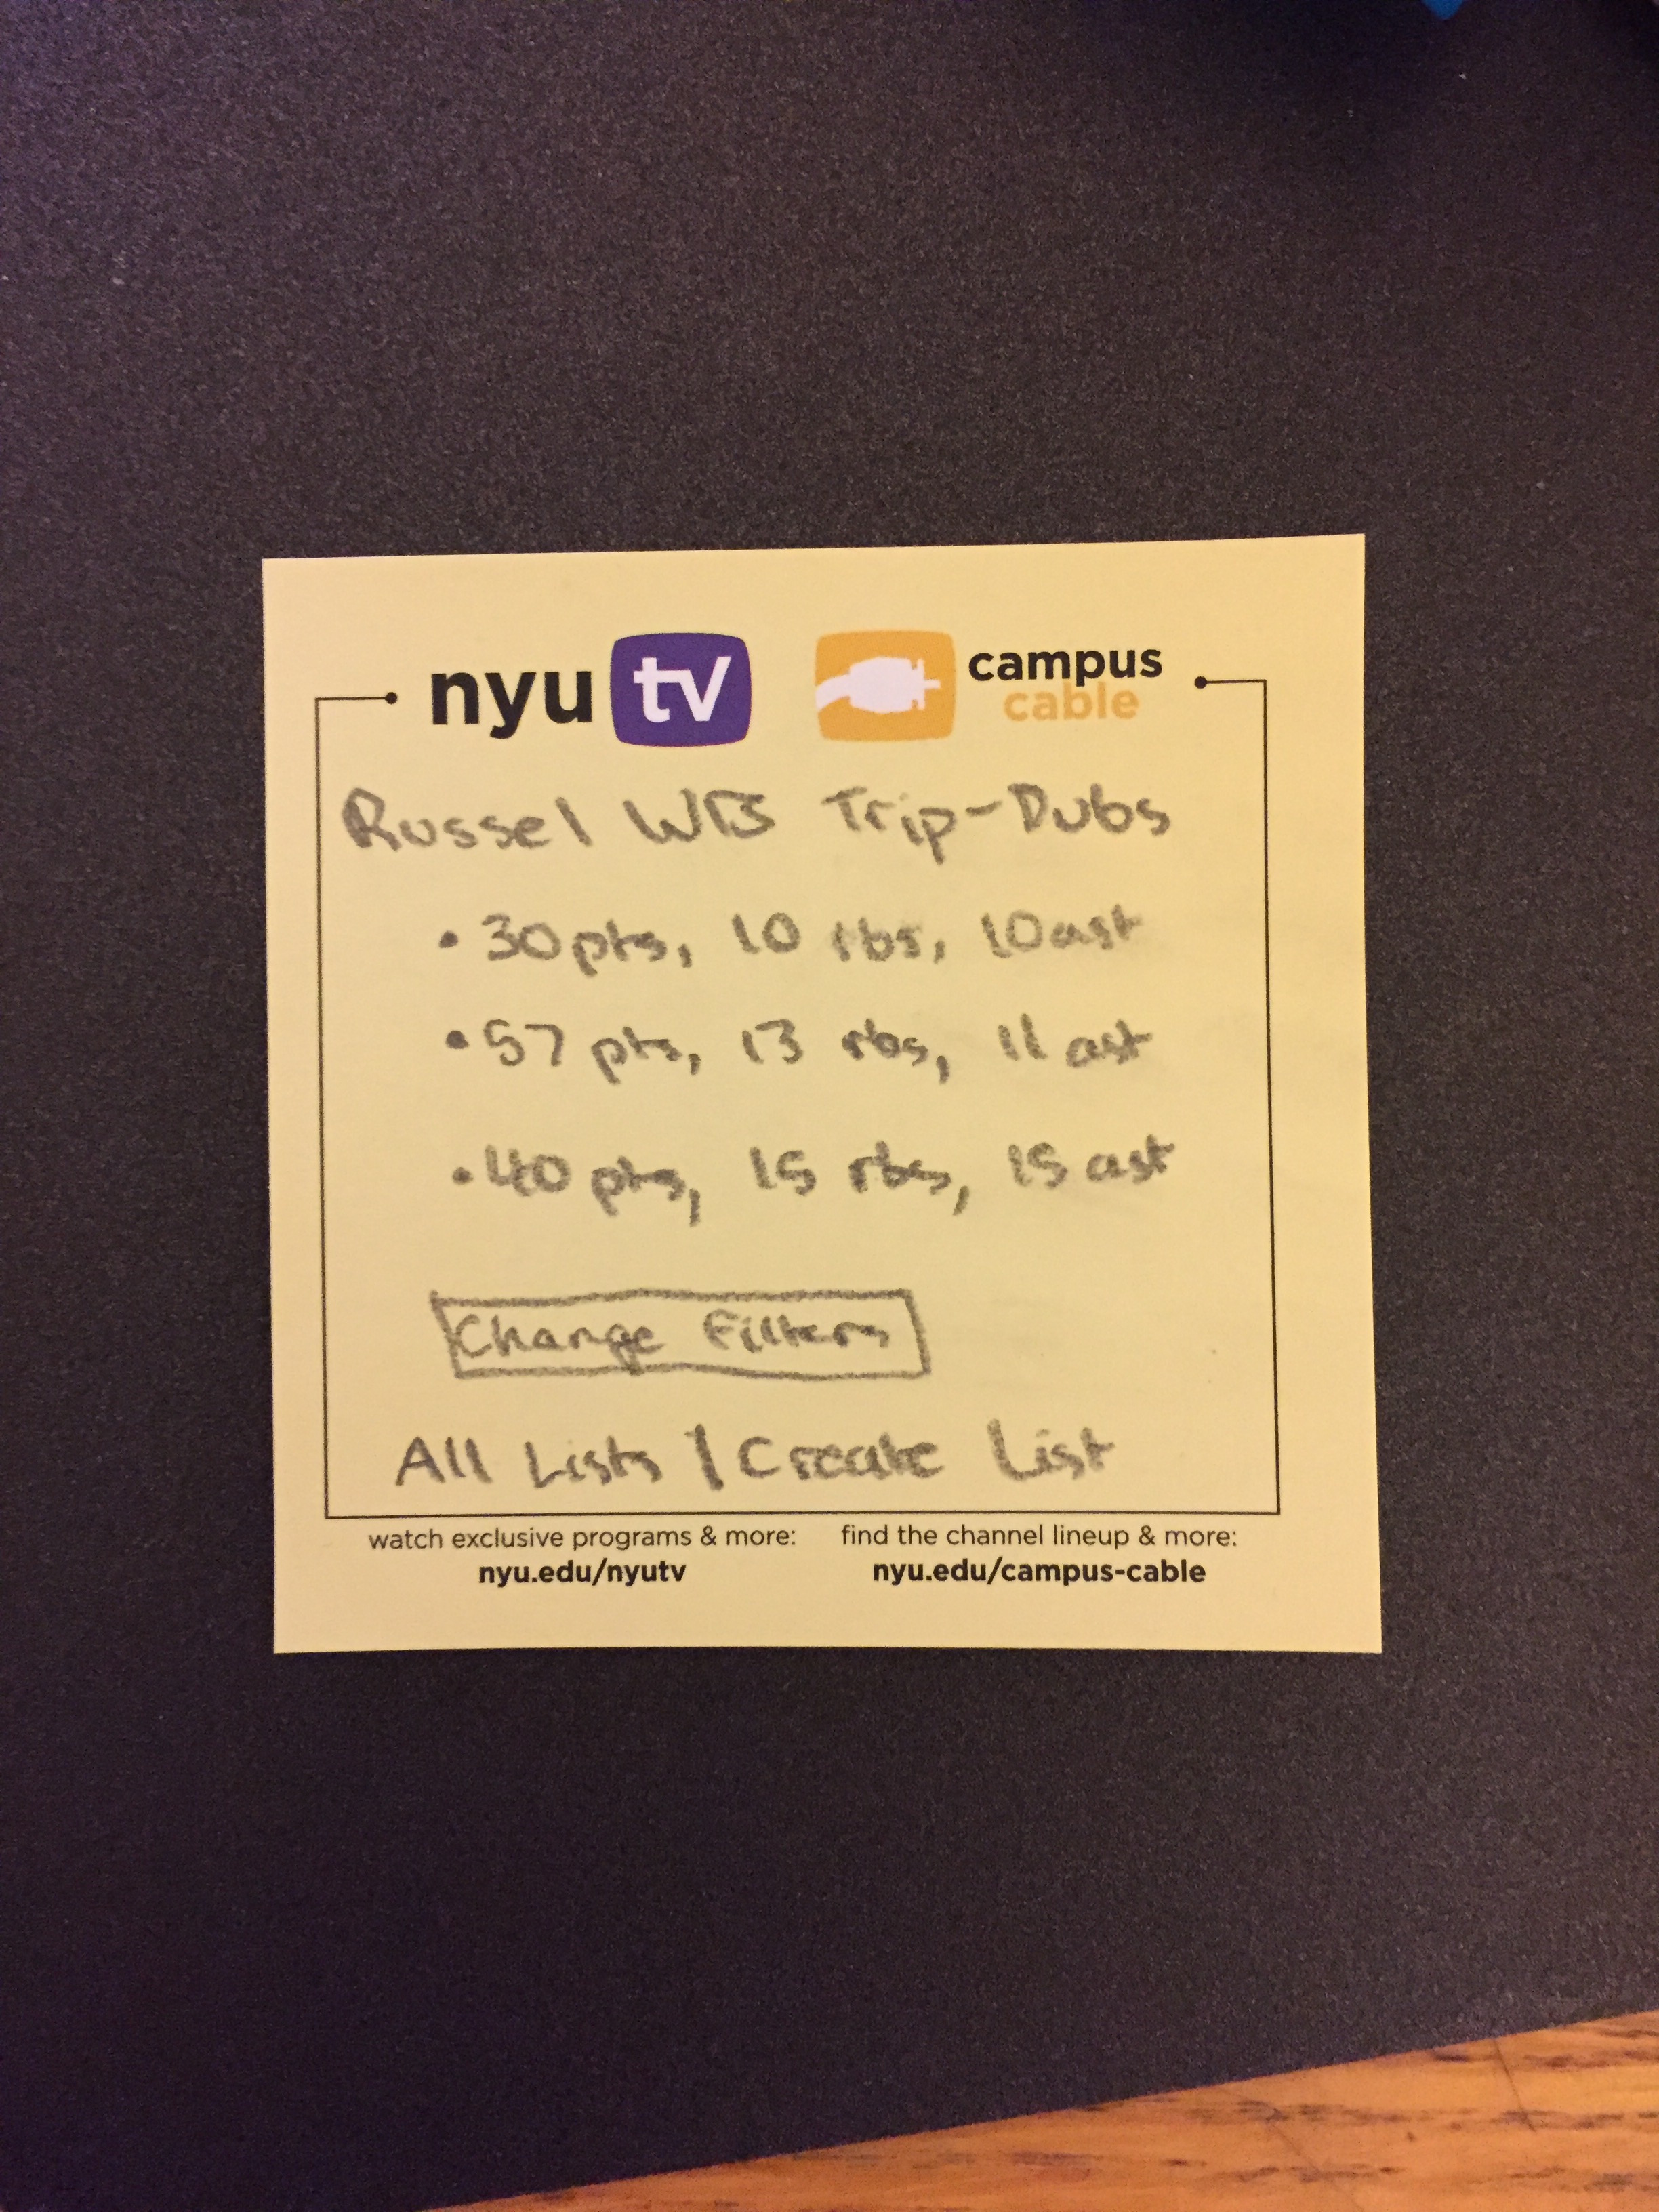 nyu tv campus
cable
Russel WB's Trip-Dubs
• 30 pts, 10 rbs, 10 ast
• 57 pts, 13 rbs, 11 ast
• 40 pts, 15 rbs, 15 ast
Change Filters
All Lists | Create List
watch exclusive programs & more: find the channel lineup & more:
nyu.edu/nyutv nyu.edu/campus-cable